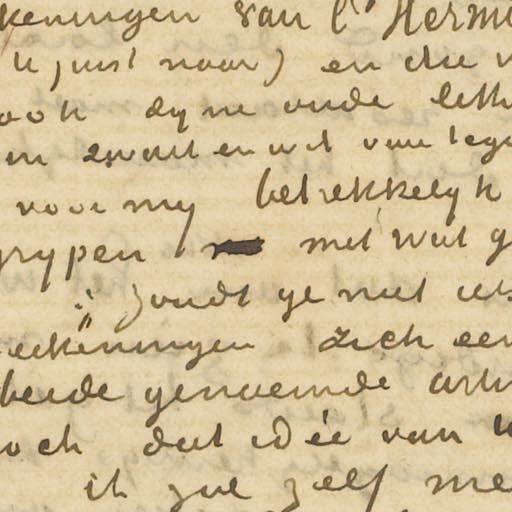 keningen van l'Hermi
u juist naar) en die
ook dyne oude lith
in zwart en wit van tege
voor my betrekkelyk
grypen met wat g
: Zoudt ge niet iets
eekeningen zich een
beide genoemde artis
och dat idée van
ik zal zelf me